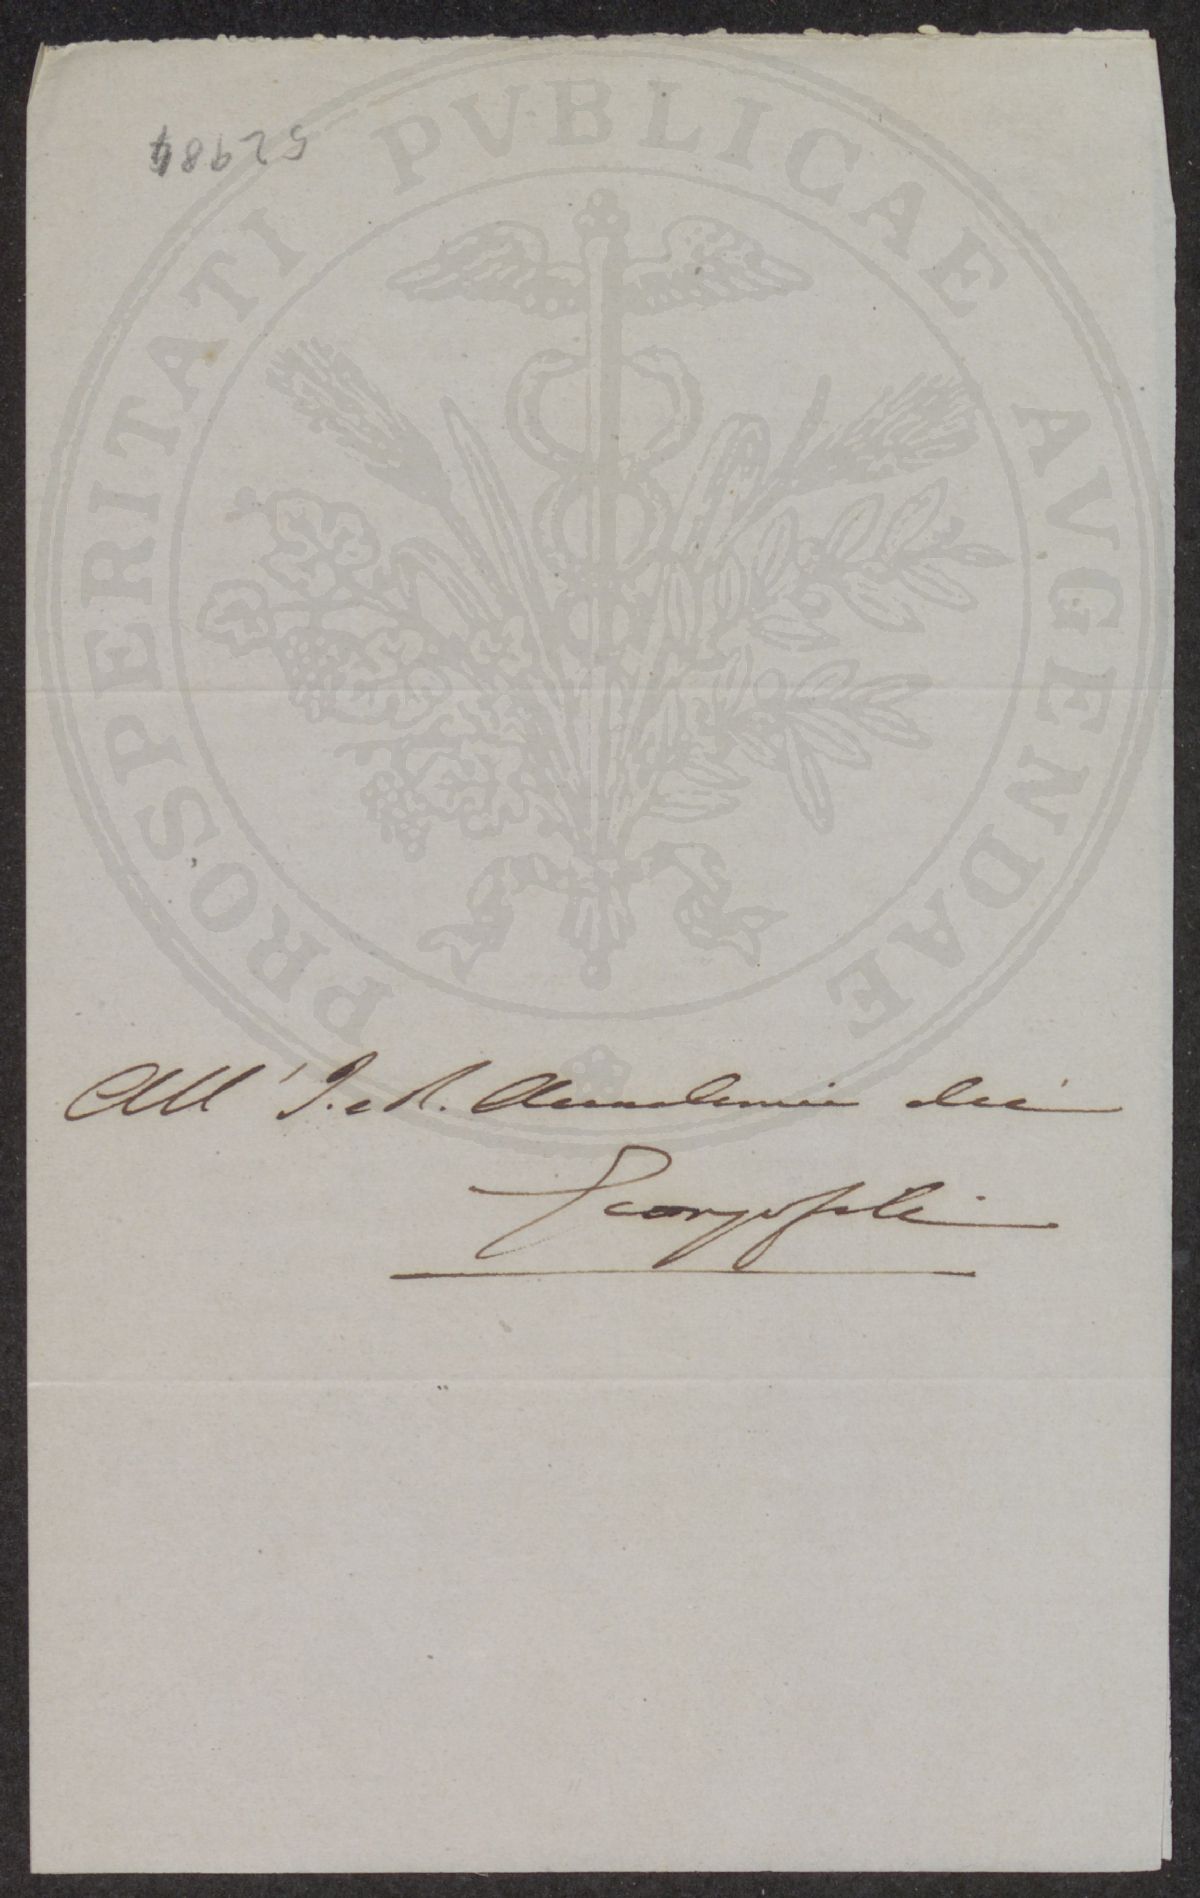 52984
PROSPERITATI PVBLICAE AVGENDAE
All' I. e R. Accademia dei
Georgofili